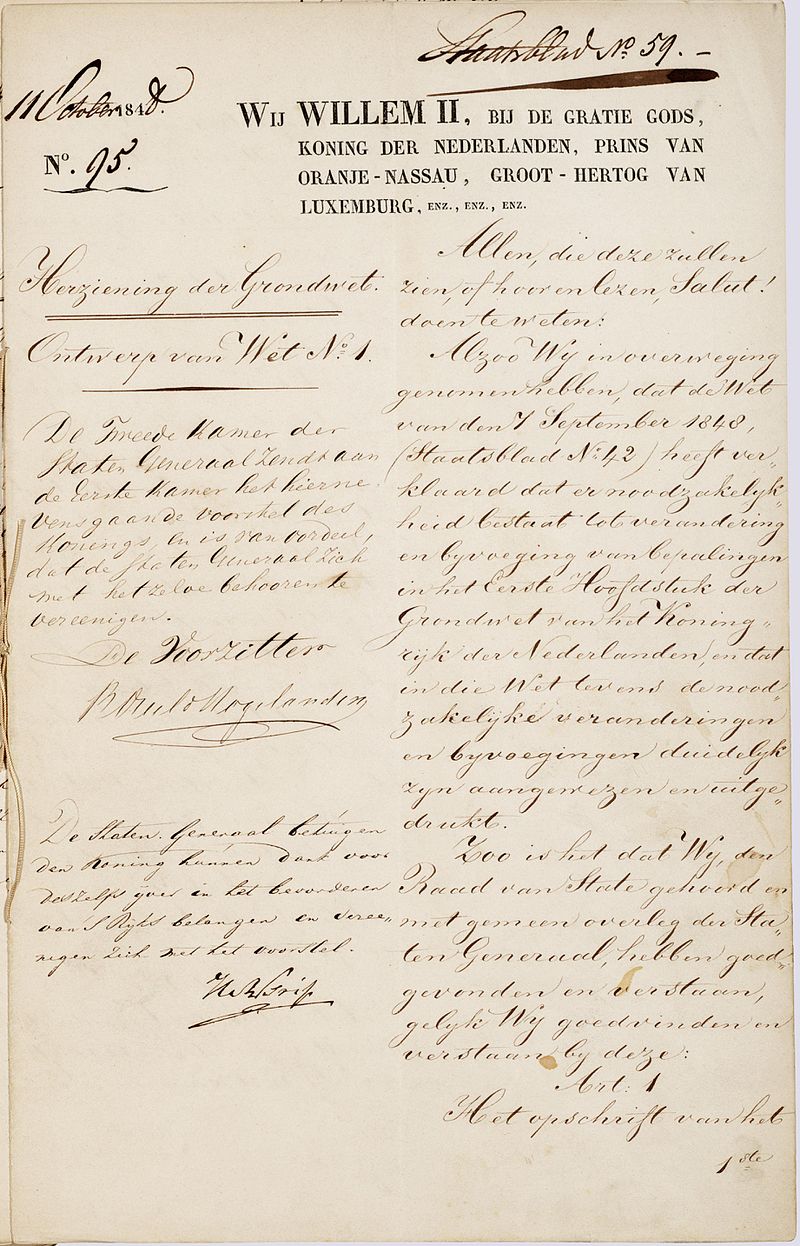 Staatsblad No. 59. –
11 October 1848.
No. 95.
WIJ WILLEM II, BIJ DE GRATIE GODS,
KONING DER NEDERLANDEN, PRINS VAN
ORANJE-NASSAU, GROOT-HERTOG VAN
LUXEMBURG, ENZ., ENZ., ENZ.
Herziening der Grondwet.
Ontwerp van Wet No. 1.
De Tweede Kamer der
Staten Generaal Zendt aan
de Eerste Kamer het hierne
vensgaande voorstel des
Konings, en is van oordeel,
dat de Staten Generaal Zich
met hetzelve behooren te
vereenigen.
De Voorzitter
De Staten-Generaal betuigen
den Koning hunnen dank voor
deszelfs ijver in het bevorderen
van 's Ryks belangen en veree-
nigen zich met het voorstel.
Allen, die deze zullen
zien, of hooren lezen, Salut!
doen te weten:
Alzoo Wy in overweging
genomen hebben, dat de Wet
van den 7 September 1848,
(Staatsblad No. 42) heeft ver-
klaard dat er noodzakelyk-
heid bestaat tot verandering
en byvoeging van bepalingen
in het Eerste Hoofdstuk der
Grondwet van het Koning-
ryk der Nederlanden, en dat
in die Wet tevens de nood-
zakelyke veranderingen
en byvoegingen duidelyk
zyn aangewezen en uitge-
drukt.
Zoo is het dat Wy, den
Raad van State gehoord en
met gemeen overleg der Sta-
ten Generaal, hebben goed-
gevonden en verstaan,
gelyk Wy goedvinden en
verstaan by deze:
Art: 1
Het opschrift van het
1ste